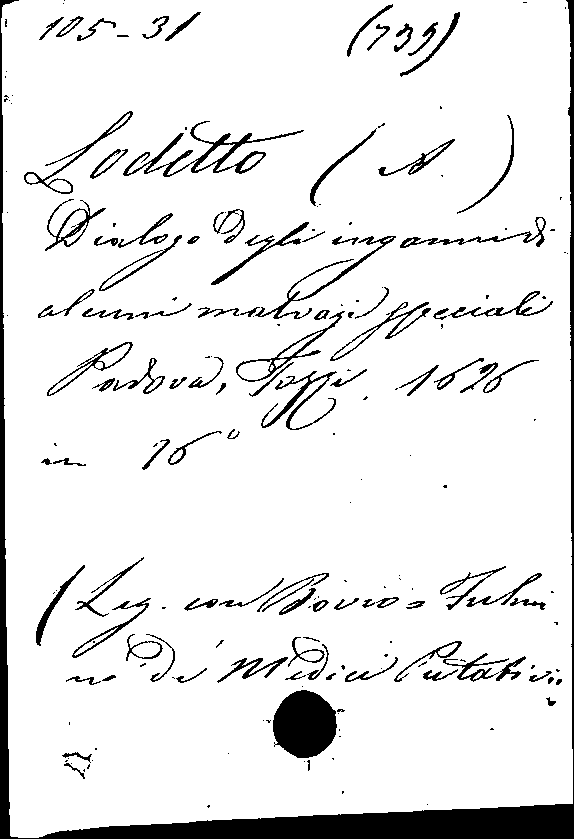 105-31 (739)
Lodetto (A.)
Dialogo degli inganni di
alcuni malvagi speciali
Padova, Tozzi, 1626
in 16°
(Leg. con Bovio = Fulmi
no de' Medici Putativi